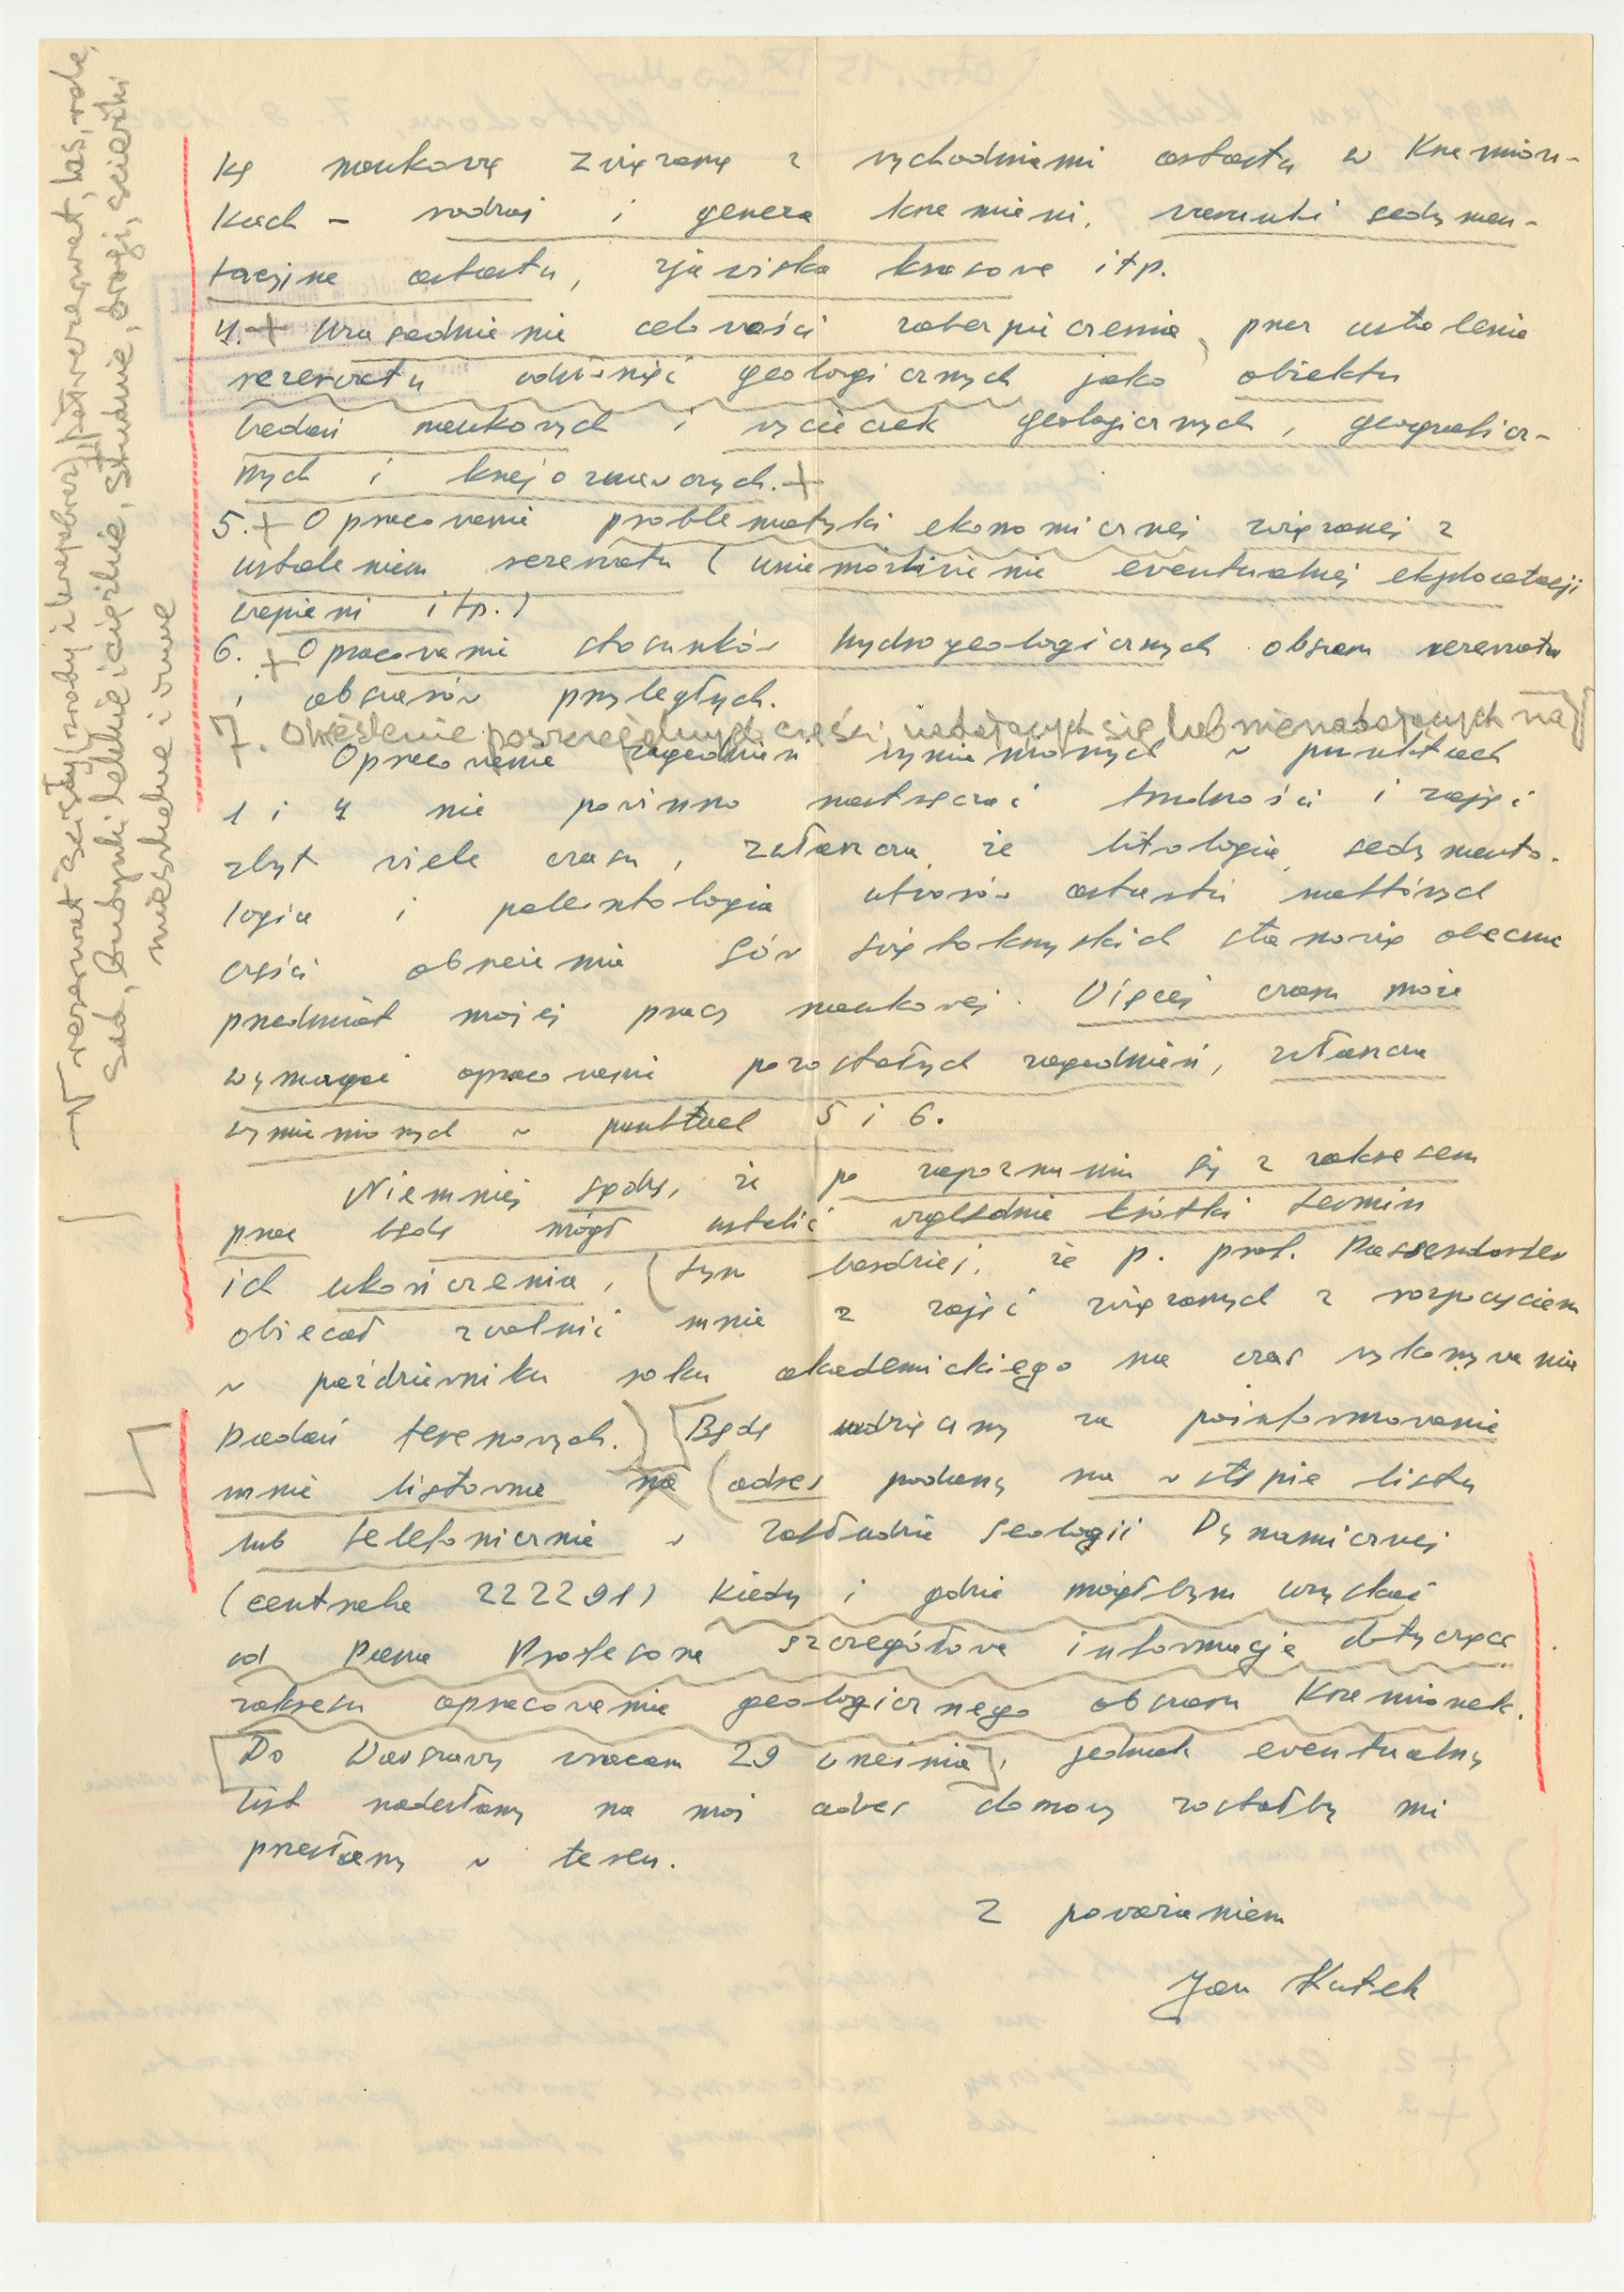 kę naukową związaną z wychodniami astartu w Krzemion-
kach – rodzaj i geneza krzemieni, warunki sedymen-
tacyjne astartu, zjawiska krasowe itp.
4. + Uzasadnienie celowości zabezpieczenia, przez ustalenie
rezerwatu odsłonięć geologicznych jako obiektu
badań naukowych i wycieczek geologicznych, geograficz-
nych i krajoznawczych. +
5. + Opracowanie problematyki ekonomicznej związanej z
ustaleniem rezerwatu (uniemożliwienie eventualnej eksploatacji
wapieni itp.)
6. + Opracowanie stosunków hydrogeologicznych obszaru rezerwatu
i obszarów przyległych.
7. Określenie poszczególnych części, nadających się lub nienadających na
Opracowanie zagadnień wymienionych w punktach
1 i 4 nie powinno nastręczać trudności i zająć
zbyt wiele czasu, zwłaszcza, że litologia, sedymento-
logia i paleontologia utworów astartu
części obrzeżenia Gór Świętokrzyskich stanowią obecnie
przedmiot mojej pracy naukowej. Więcej czasu może
wymagać opracowanie pozostałych zagadnień, zwłaszcza
wymienionych w punktach 5 i 6.
Niemniej sądzę, że po zapoznaniu się z zakresem
prac będę mógł ustalić względnie krótki termin
ich ukończenia, (tym bardziej, że p. prof. Passendorfer
obiecał zwolnić mnie z zajęć związanych z rozpoczęciem
w październiku roku akademickiego na czas wykonywania
badań terenowych.) [Będę wdzięczny za poinformowanie
mnie listownie na (adres podany na wstępie listu
lub telefonicznie w Zakładzie Geologii Dynamicznej
(centrala 222291) kiedy i gdzie mógłbym uzyskać
od Pana Profesora szczegółowe informacje dotyczące
zakresu opracowania geologicznego obszaru Krzemionek.
[Do Warszawy wracam 29 września], jednak eventualny
list nadesłany na mój adres domowy zostałby mi
przesłany w teren.
Z poważaniem
Jan Kutek
→ rezerwat ścisły (zroby i krajobraz) półrezerwat, las, rola,
sad, budynki lekkie i ciężkie, studnie, drogi, ścieżki
mieszkalne i inne